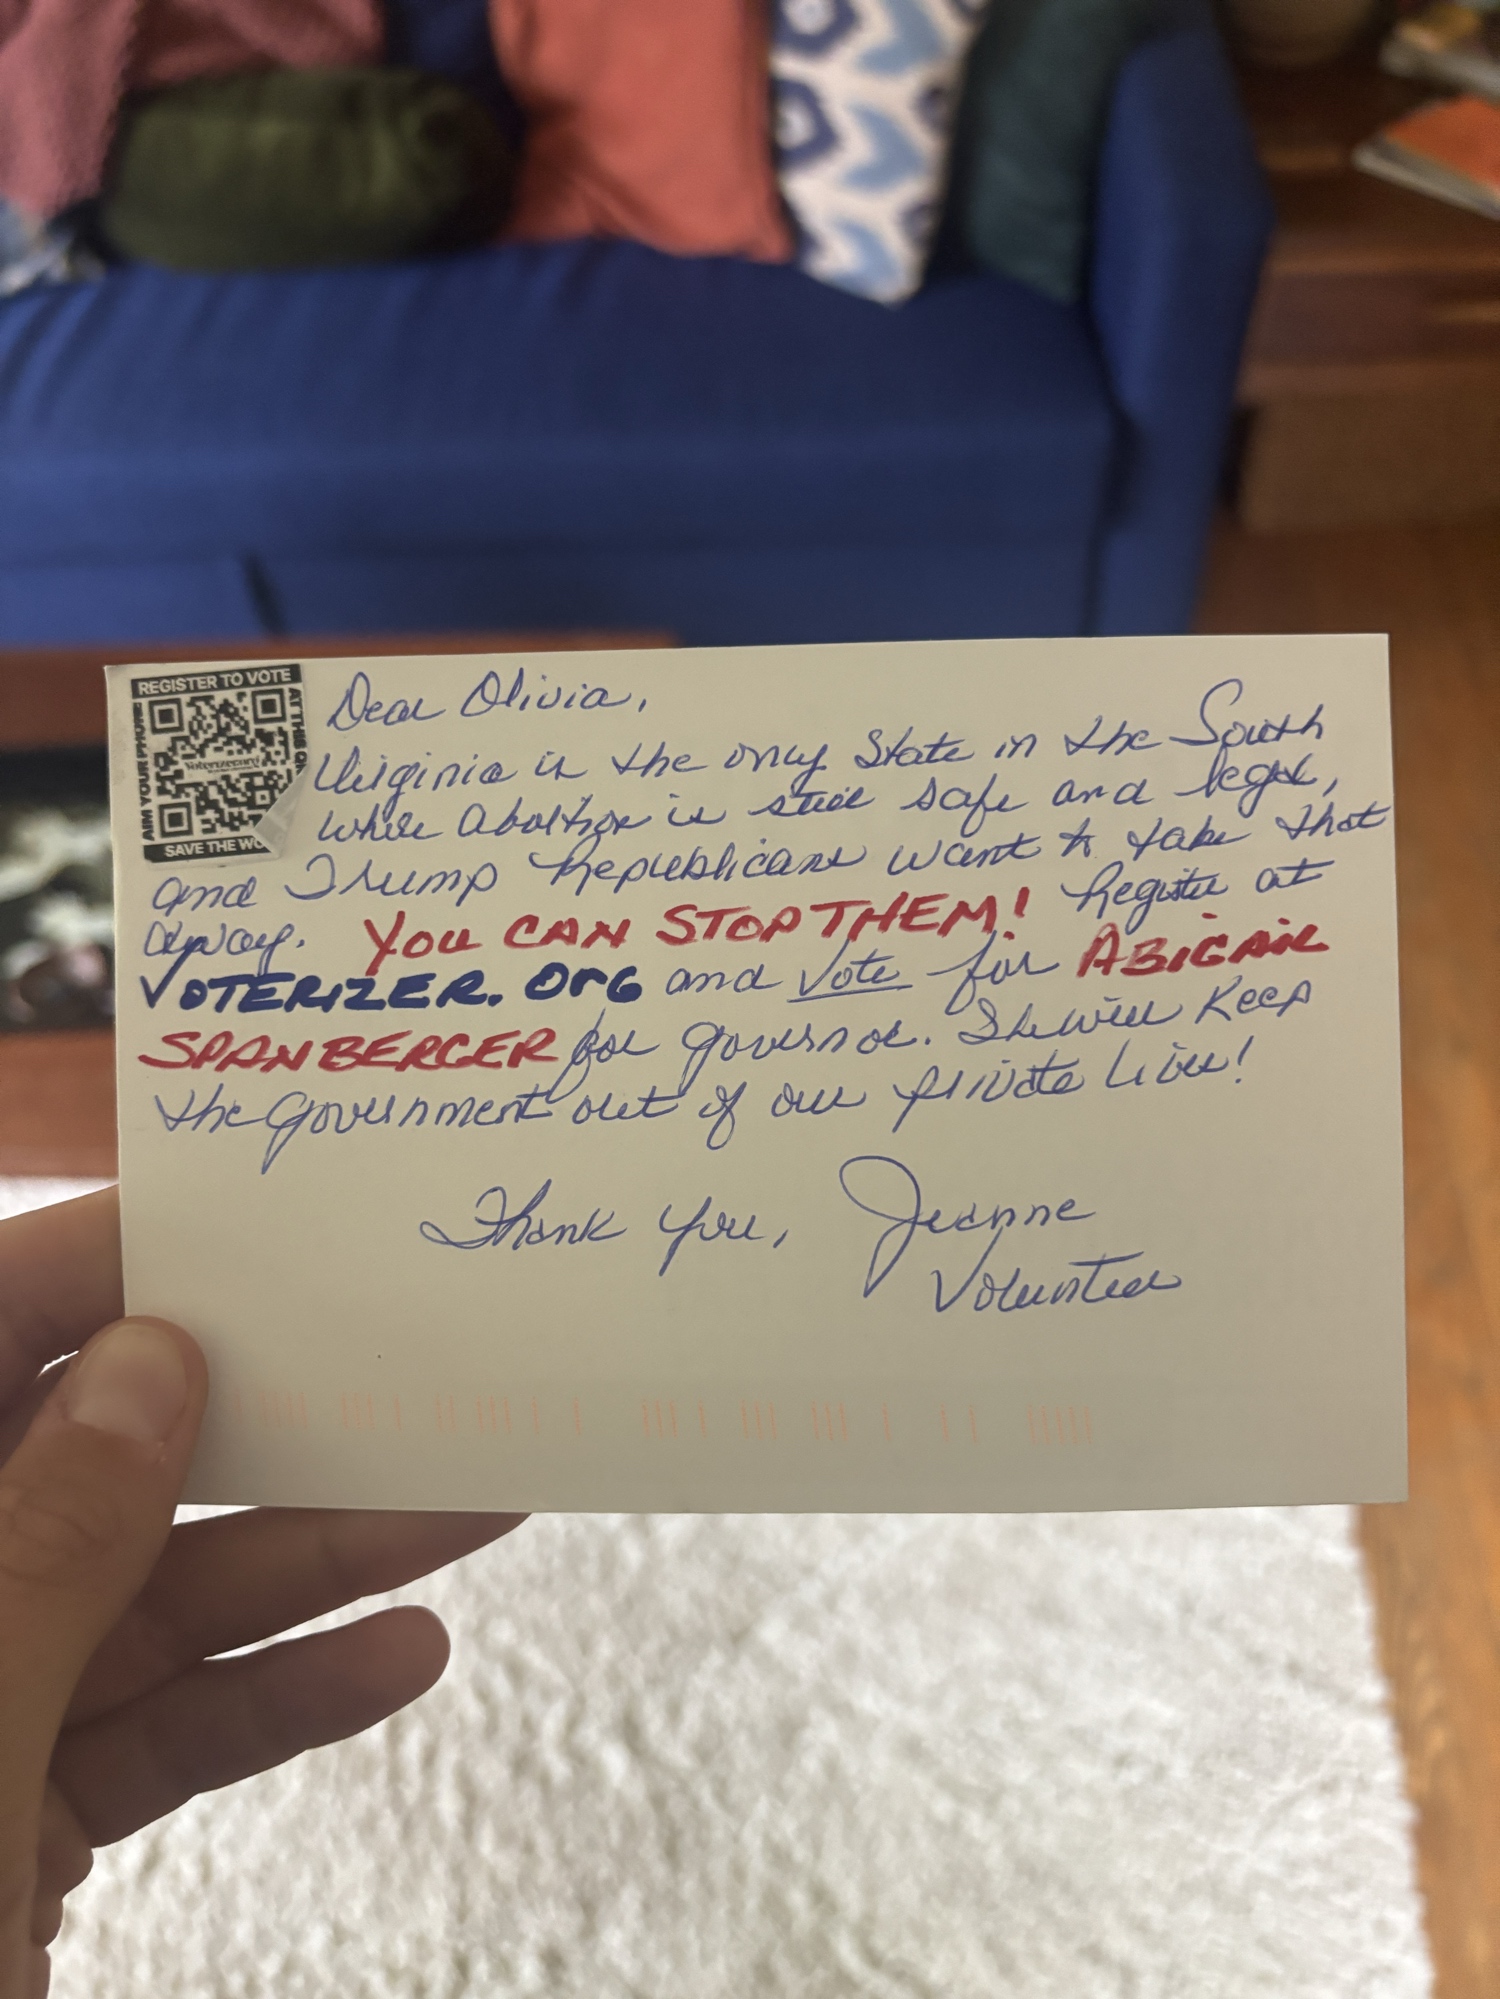 REGISTER TO VOTE
AIM YOUR PHONE
AT THIS
Voterizer.org
SAVE THE WO
Dear Olivia,
Virginia is the only State in the South
where abortion is still safe and legal,
and Trump Republicans want to take that
away. YOU CAN STOP THEM! Register at
VOTERIZER.ORG and vote for ABIGAIL
SPANBERGER for governor. She will keep
the government out of our private lives!
Thank you, Jeanne
Volunteer